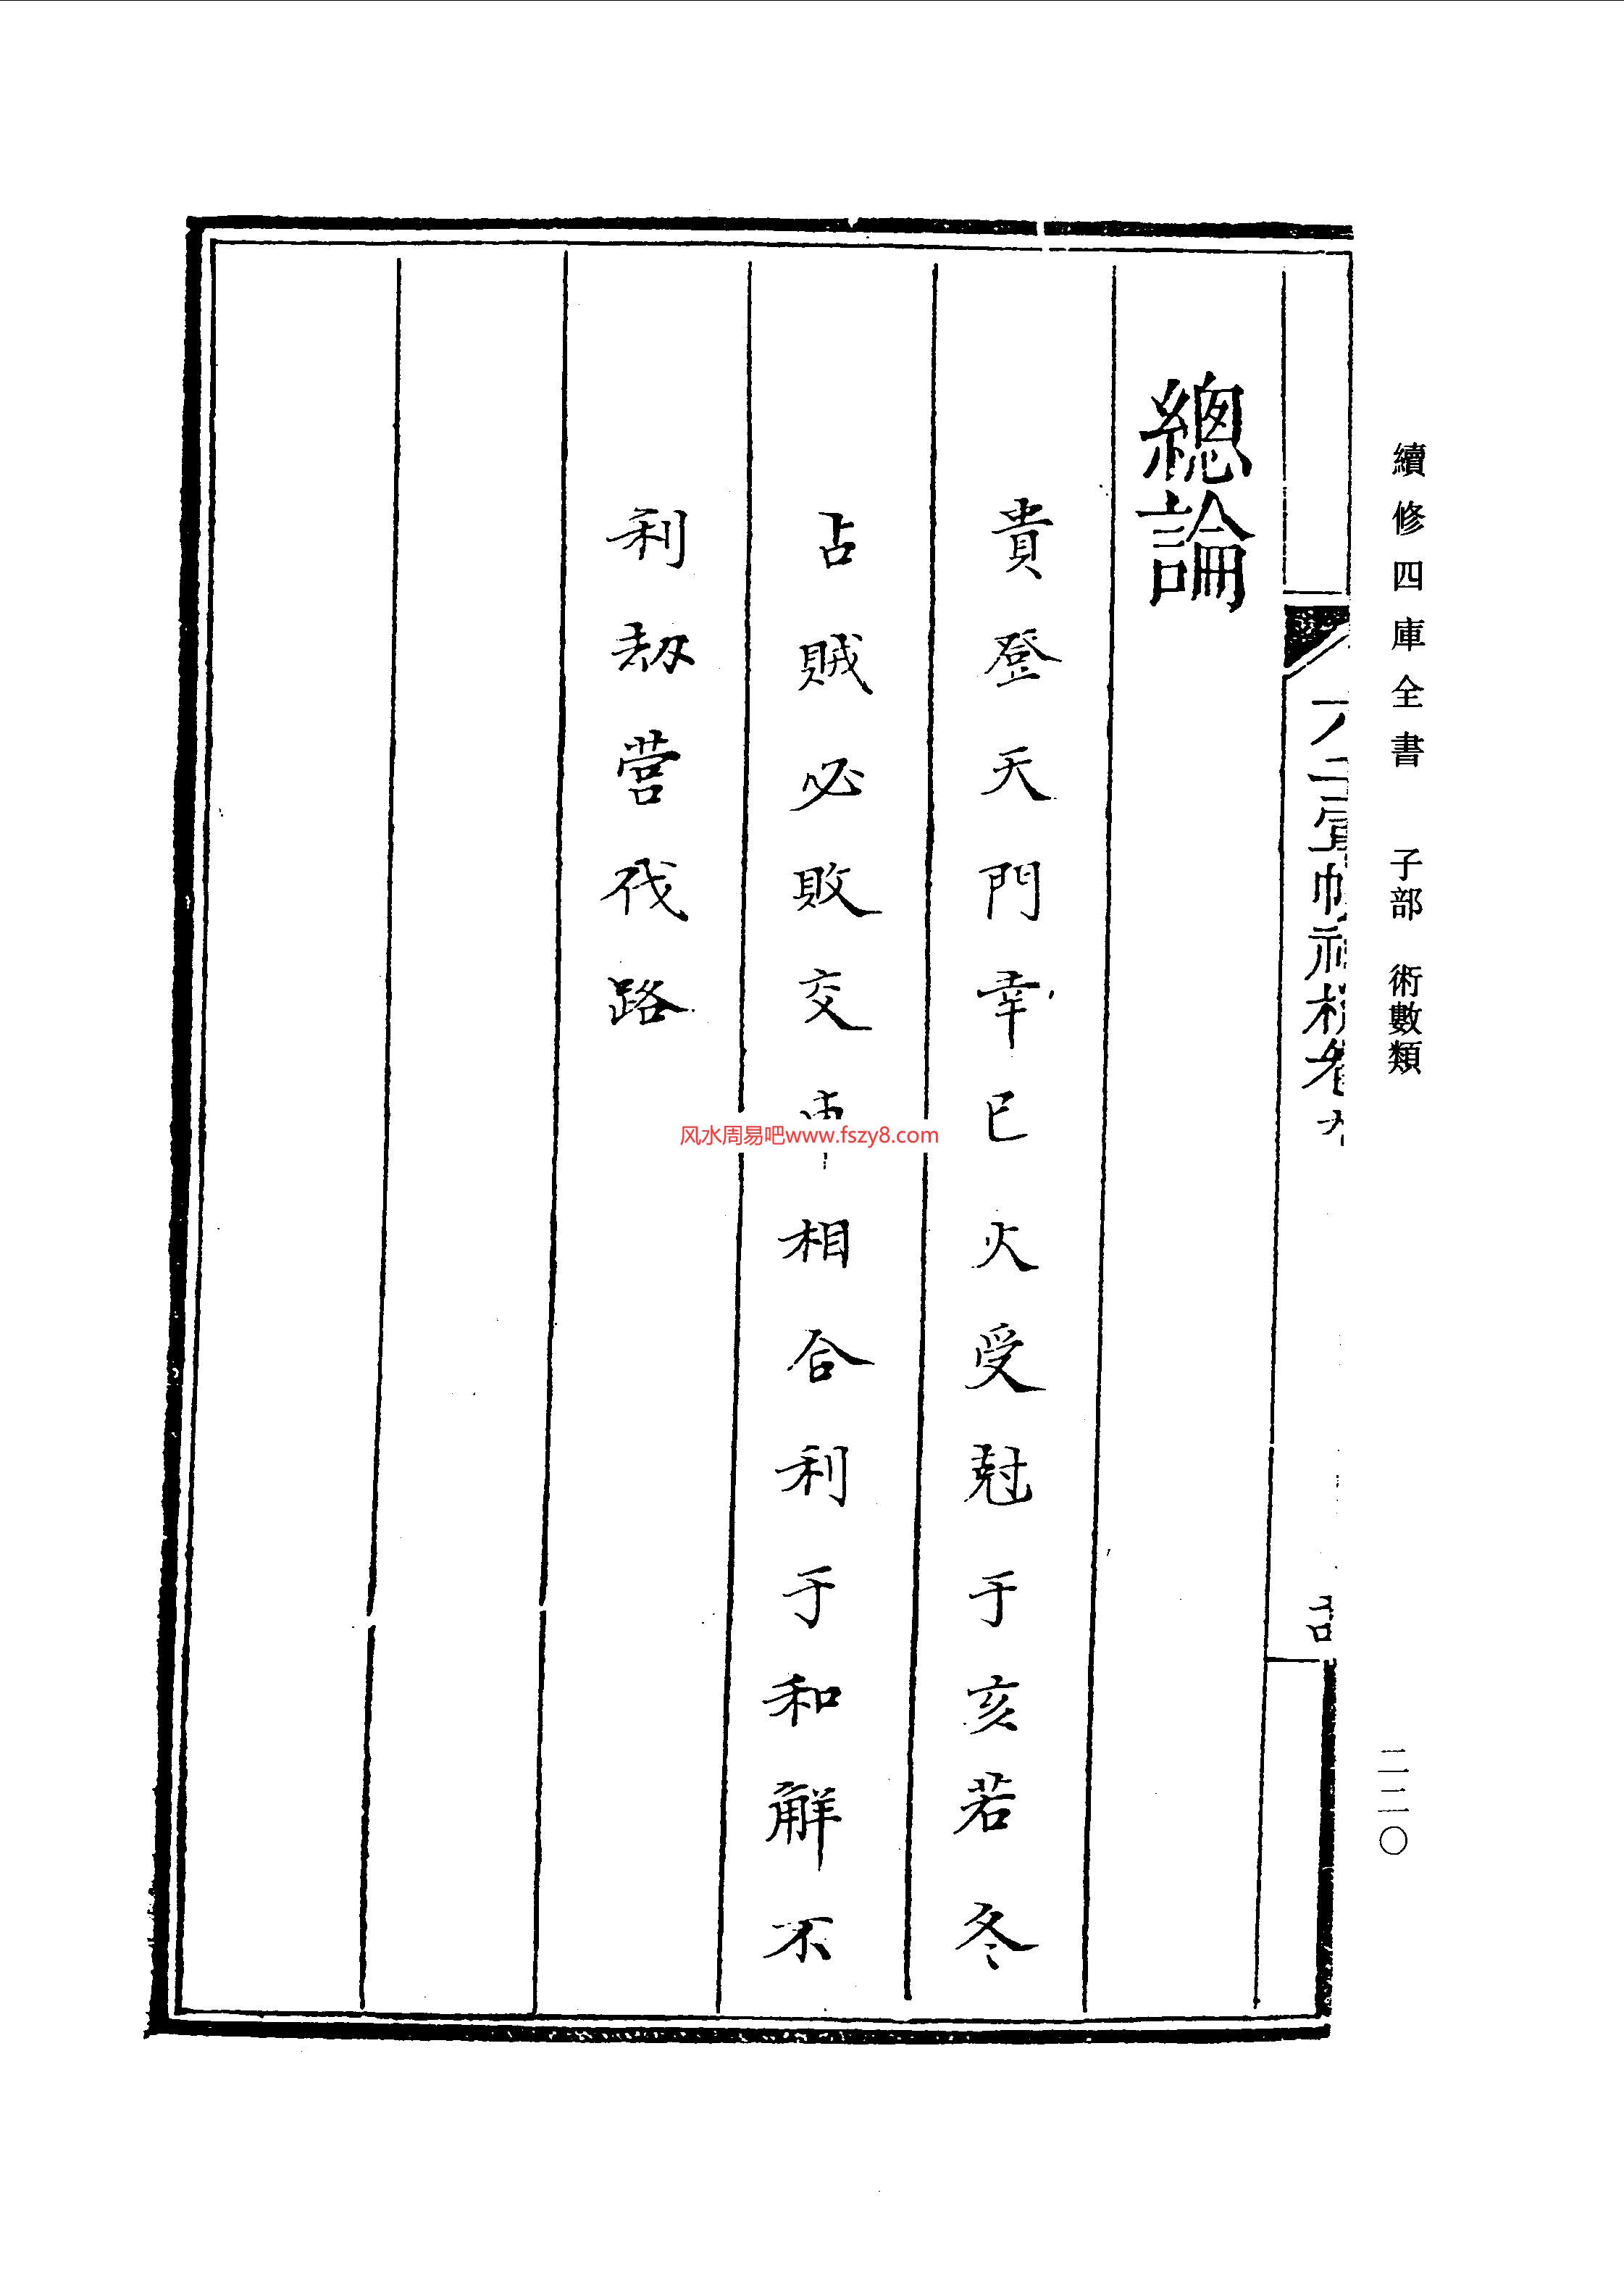 續修四庫全書 子部 術數類
二二〇
總論
貴登天門幸巳火受尅于亥若冬
占賊必敗交車相合利于和解不
利劫營伐路
风水周易吧www.fszy8.com